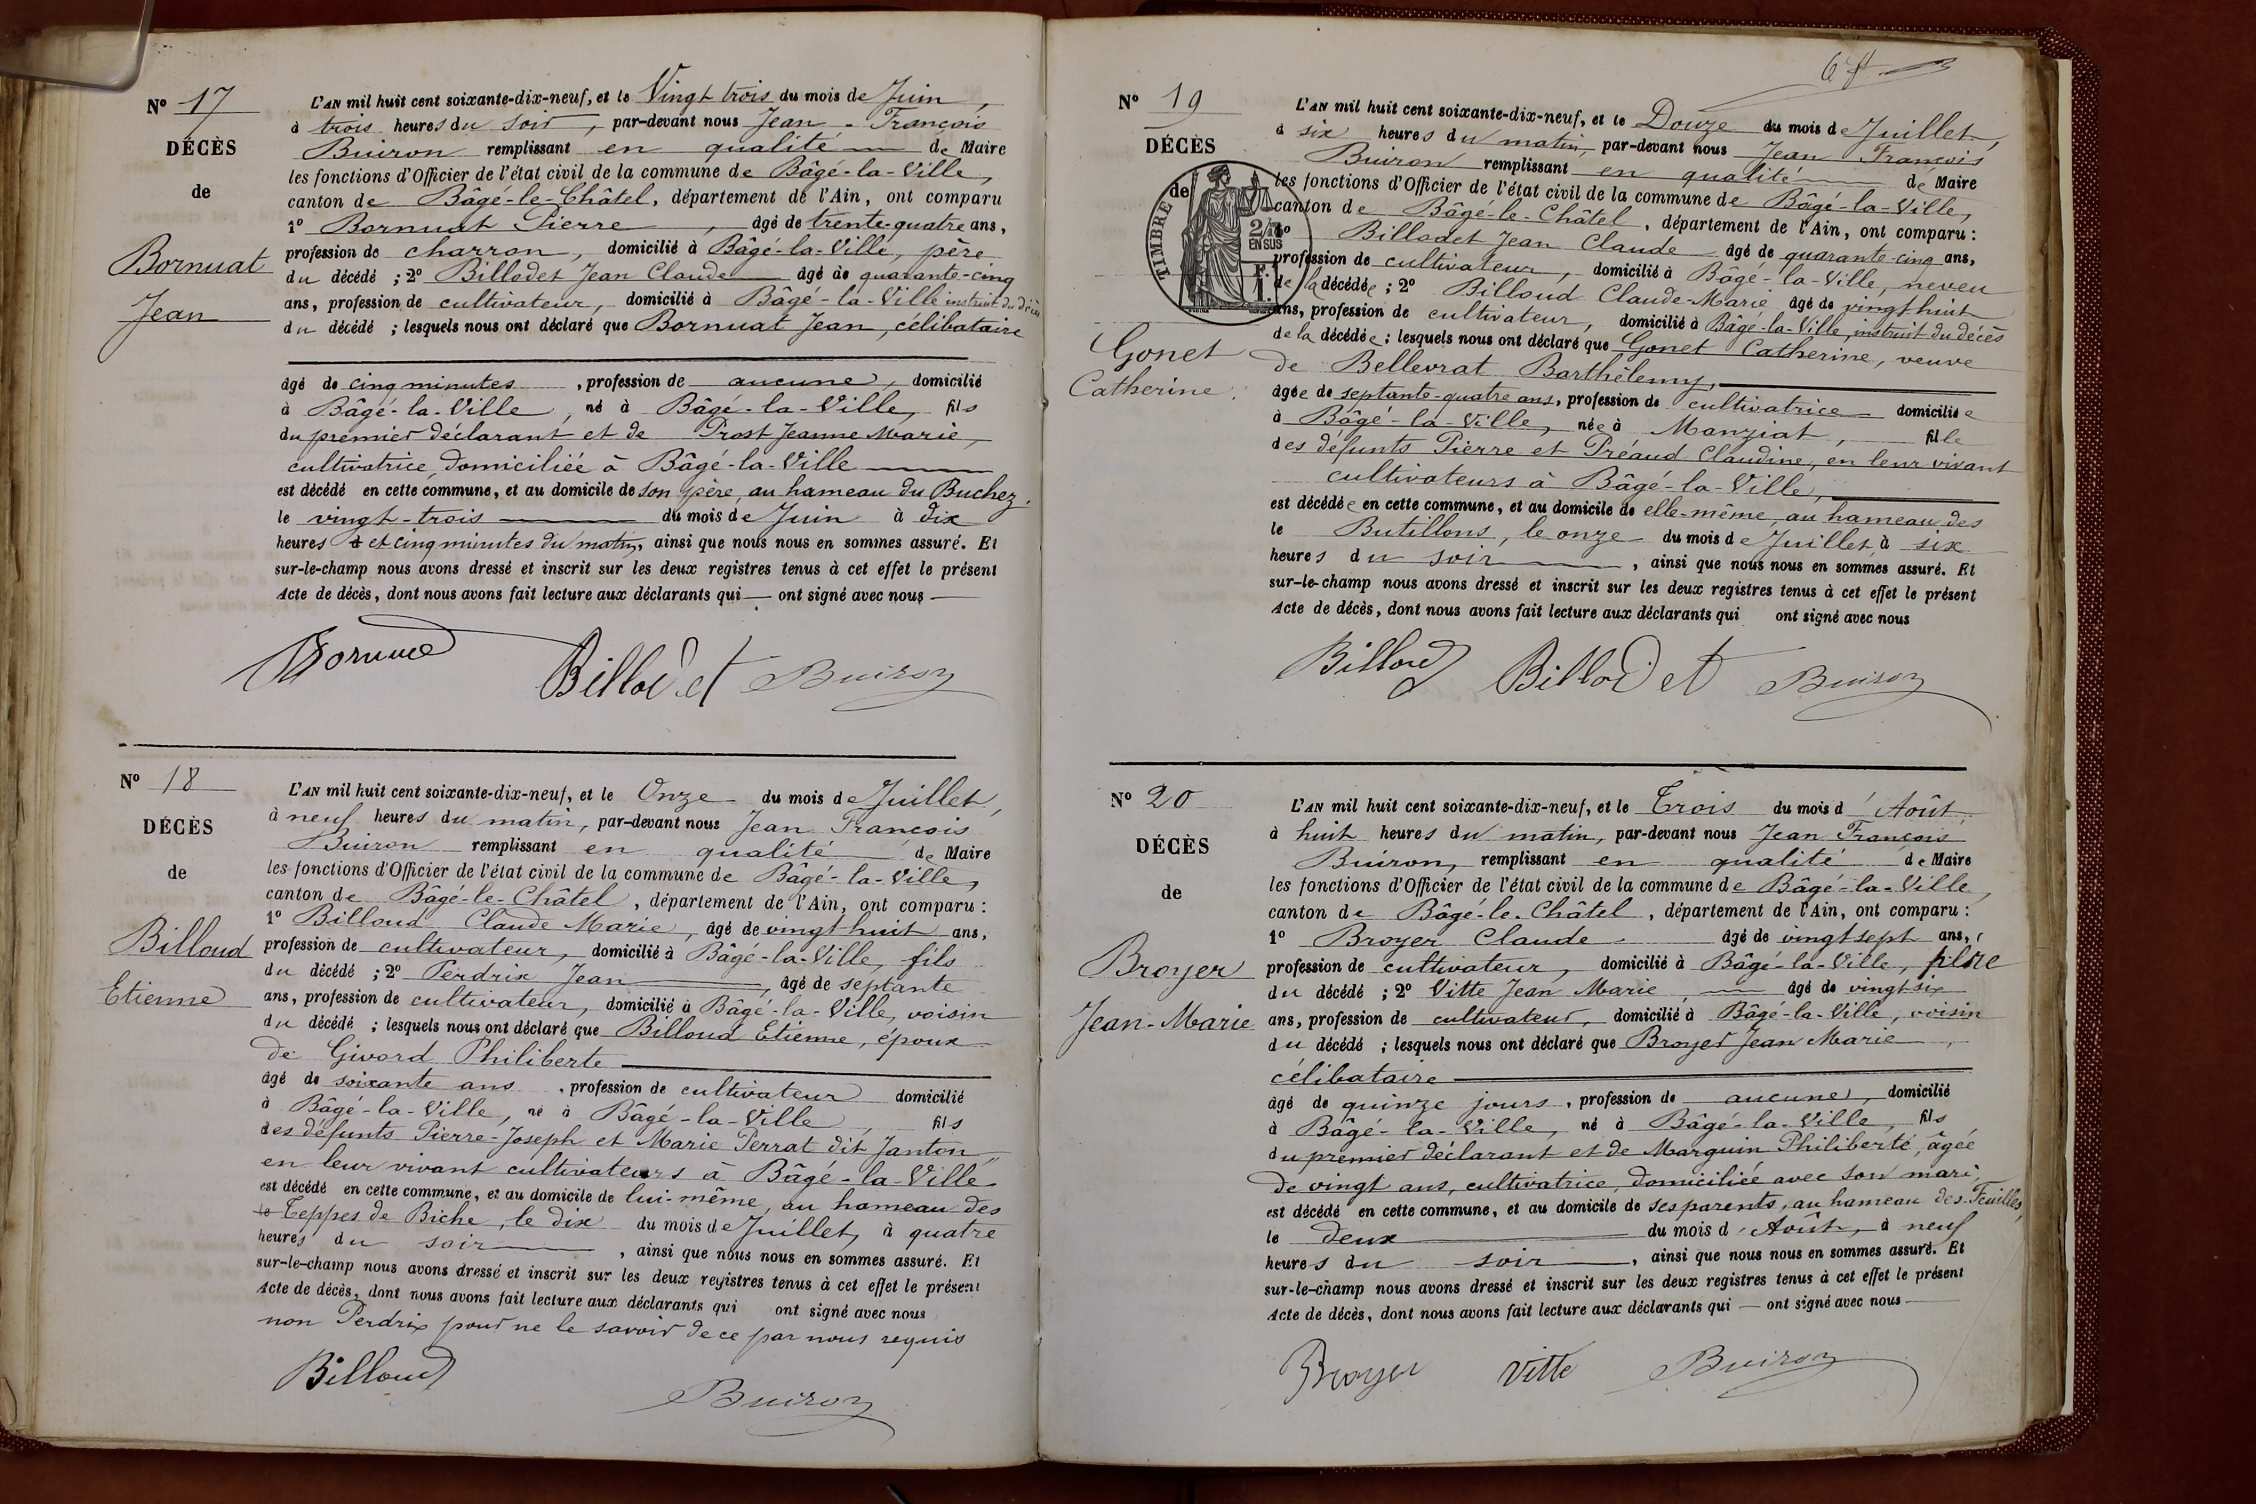 Nº 17
DÉCÈS
de
Bornuat
Jean
L'AN mil huit cent soixante-dix-neuf, et le Vingt trois du mois de Juin,
à trois heures du soir, par-devant nous Jean-François
Buiron remplissant en qualité de Maire
les fonctions d'Officier de l'état civil de la commune de Bâgé-la-Ville,
canton de Bâgé-le-Châtel, département de l'Ain, ont comparu
1º Bornuat Pierre, âgé de trente-quatre ans,
profession de charron, domicilié à Bâgé-la-Ville, père
du décédé ; 2º Billodet Jean Claude âgé de quarante-cinq
ans, profession de cultivateur, domicilié à Bâgé-la-Ville instruit du décès
du décédé ; lesquels nous ont déclaré que Bornuat Jean, célibataire
âgé de cinq minutes, profession de aucune, domicilié
à Bâgé-la-Ville, né à Bâgé-la-Ville, fils
du premier déclarant et de Prost Jeanne Marie,
cultivatrice domiciliée à Bâgé-la-Ville
est décédé en cette commune, et au domicile de son père, au hameau du Buchez.
le vingt-trois du mois de Juin à dix
heures et cinq minutes du matin, ainsi que nous nous en sommes assuré. Et
sur-le-champ nous avons dressé et inscrit sur les deux registres tenus à cet effet le présent
Acte de décès, dont nous avons fait lecture aux déclarants qui — ont signé avec nous —
Billodet Buiron
Nº 18
DÉCÈS
de
Billoud
Etienne
L'AN mil huit cent soixante-dix-neuf, et le Onze du mois de Juillet,
à neuf heures du matin, par-devant nous Jean François
Buiron remplissant en qualité de Maire
les fonctions d'Officier de l'état civil de la commune de Bagé-la-Ville,
canton de Bâgé-le-Châtel, département de l'Ain, ont comparu :
1º Billoud Claude Marie, âgé de vingt huit ans,
profession de cultivateur, domicilié à Bâgé-la-Ville, fils
du décédé ; 2º Perdrix Jean, âgé de septante
ans, profession de cultivateur, domicilié à Bâgé-la-Ville, voisin
du décédé ; lesquels nous ont déclaré que Billoud Etienne, époux
de Givord Philiberte
âgé de soixante ans, profession de cultivateur domicilié
à Bâgé-la-Ville, né à Bâgé-la-Ville, fils
des défunts Pierre-Joseph et Marie Perrat dit Janton
en leur vivant cultivateurs à Bâgé-la-Ville
est décédé en cette commune, et au domicile de lui-même, au hameau des
le Teppes de Biche, le dix du mois de Juillet, à quatre
heures du soir, ainsi que nous nous en sommes assuré. Et
sur-le-champ nous avons dressé et inscrit sur les deux registres tenus à cet effet le présent
Acte de décès, dont nous avons fait lecture aux déclarants qui ont signé avec nous
non Perdrix pour ne le savoir de ce par nous requis
Billoud
Buiron
Nº 19
DÉCÈS
de
TIMBRE
2/10
EN SUS
Gonet
Catherine.
L'AN mil huit cent soixante-dix-neuf, et le Douze du mois de Juillet,
à six heures du matin, par-devant nous Jean François
Buiron remplissant en qualité de Maire
les fonctions d'Officier de l'état civil de la commune de Bâgé-la-Ville,
canton de Bâgé-le-Châtel, département de l'Ain, ont comparu :
1º Billodet Jean Claude âgé de quarante-cinq ans,
profession de cultivateur, domicilié à Bâgé-la-Ville, neveu
de la décédée ; 2º Billoud Claude-Marie âgé de vingt huit
ans, profession de cultivateur, domicilié à Bâgé-la-Ville, instruit du décès
de la décédée ; lesquels nous ont déclaré que Gonet Catherine, veuve
de Bellevrat Barthélemy,
âgée de septante-quatre ans, profession de cultivatrice domiciliée
à Bâgé-la-Ville, née à Manziat, fille
des défunts Pierre et Préaud Claudine, en leur vivant
cultivateurs à Bâgé-la-Ville,
est décédée en cette commune, et au domicile de elle-même, au hameau des
le Butillons, le onze du mois de Juillet, à six
heures du soir, ainsi que nous nous en sommes assuré. Et
sur-le-champ nous avons dressé et inscrit sur les deux registres tenus à cet effet le présent
Acte de décès, dont nous avons fait lecture aux déclarants qui ont signé avec nous
Billoud Billodet Buiron
Nº 20
DÉCÈS
de
Broyer
Jean-Marie
L'AN mil huit cent soixante-dix-neuf, et le Trois du mois d'Août,
à huit heures du matin, par-devant nous Jean François
Buiron, remplissant en qualité de Maire
les fonctions d'Officier de l'état civil de la commune de Bâgé-la-Ville,
canton de Bâgé-le-Châtel, département de l'Ain, ont comparu :
1º Broyer Claude âgé de vingt sept ans,
profession de cultivateur, domicilié à Bâgé-la-Ville,
du décédé ; 2º Vitte Jean Marie, âgé de vingt six
ans, profession de cultivateur, domicilié à Bâgé-la-Ville, voisin
du décédé ; lesquels nous ont déclaré que Broyer Jean Marie,
célibataire
âgé de quinze jours, profession de aucune, domicilié
à Bâgé-la-Ville, né à Bâgé-la-Ville, fils
du premier déclarant et de Marguin Philiberte, âgée
de vingt ans, cultivatrice, domiciliée avec son mari,
est décédé en cette commune, et au domicile de ses parents, au hameau des Feuilles,
le deux du mois d'Août, à neuf
heures du soir, ainsi que nous nous en sommes assuré. Et
sur-le-champ nous avons dressé et inscrit sur les deux registres tenus à cet effet le présent
Acte de décès, dont nous avons fait lecture aux déclarants qui — ont signé avec nous —
Broyer Vitte Buiron